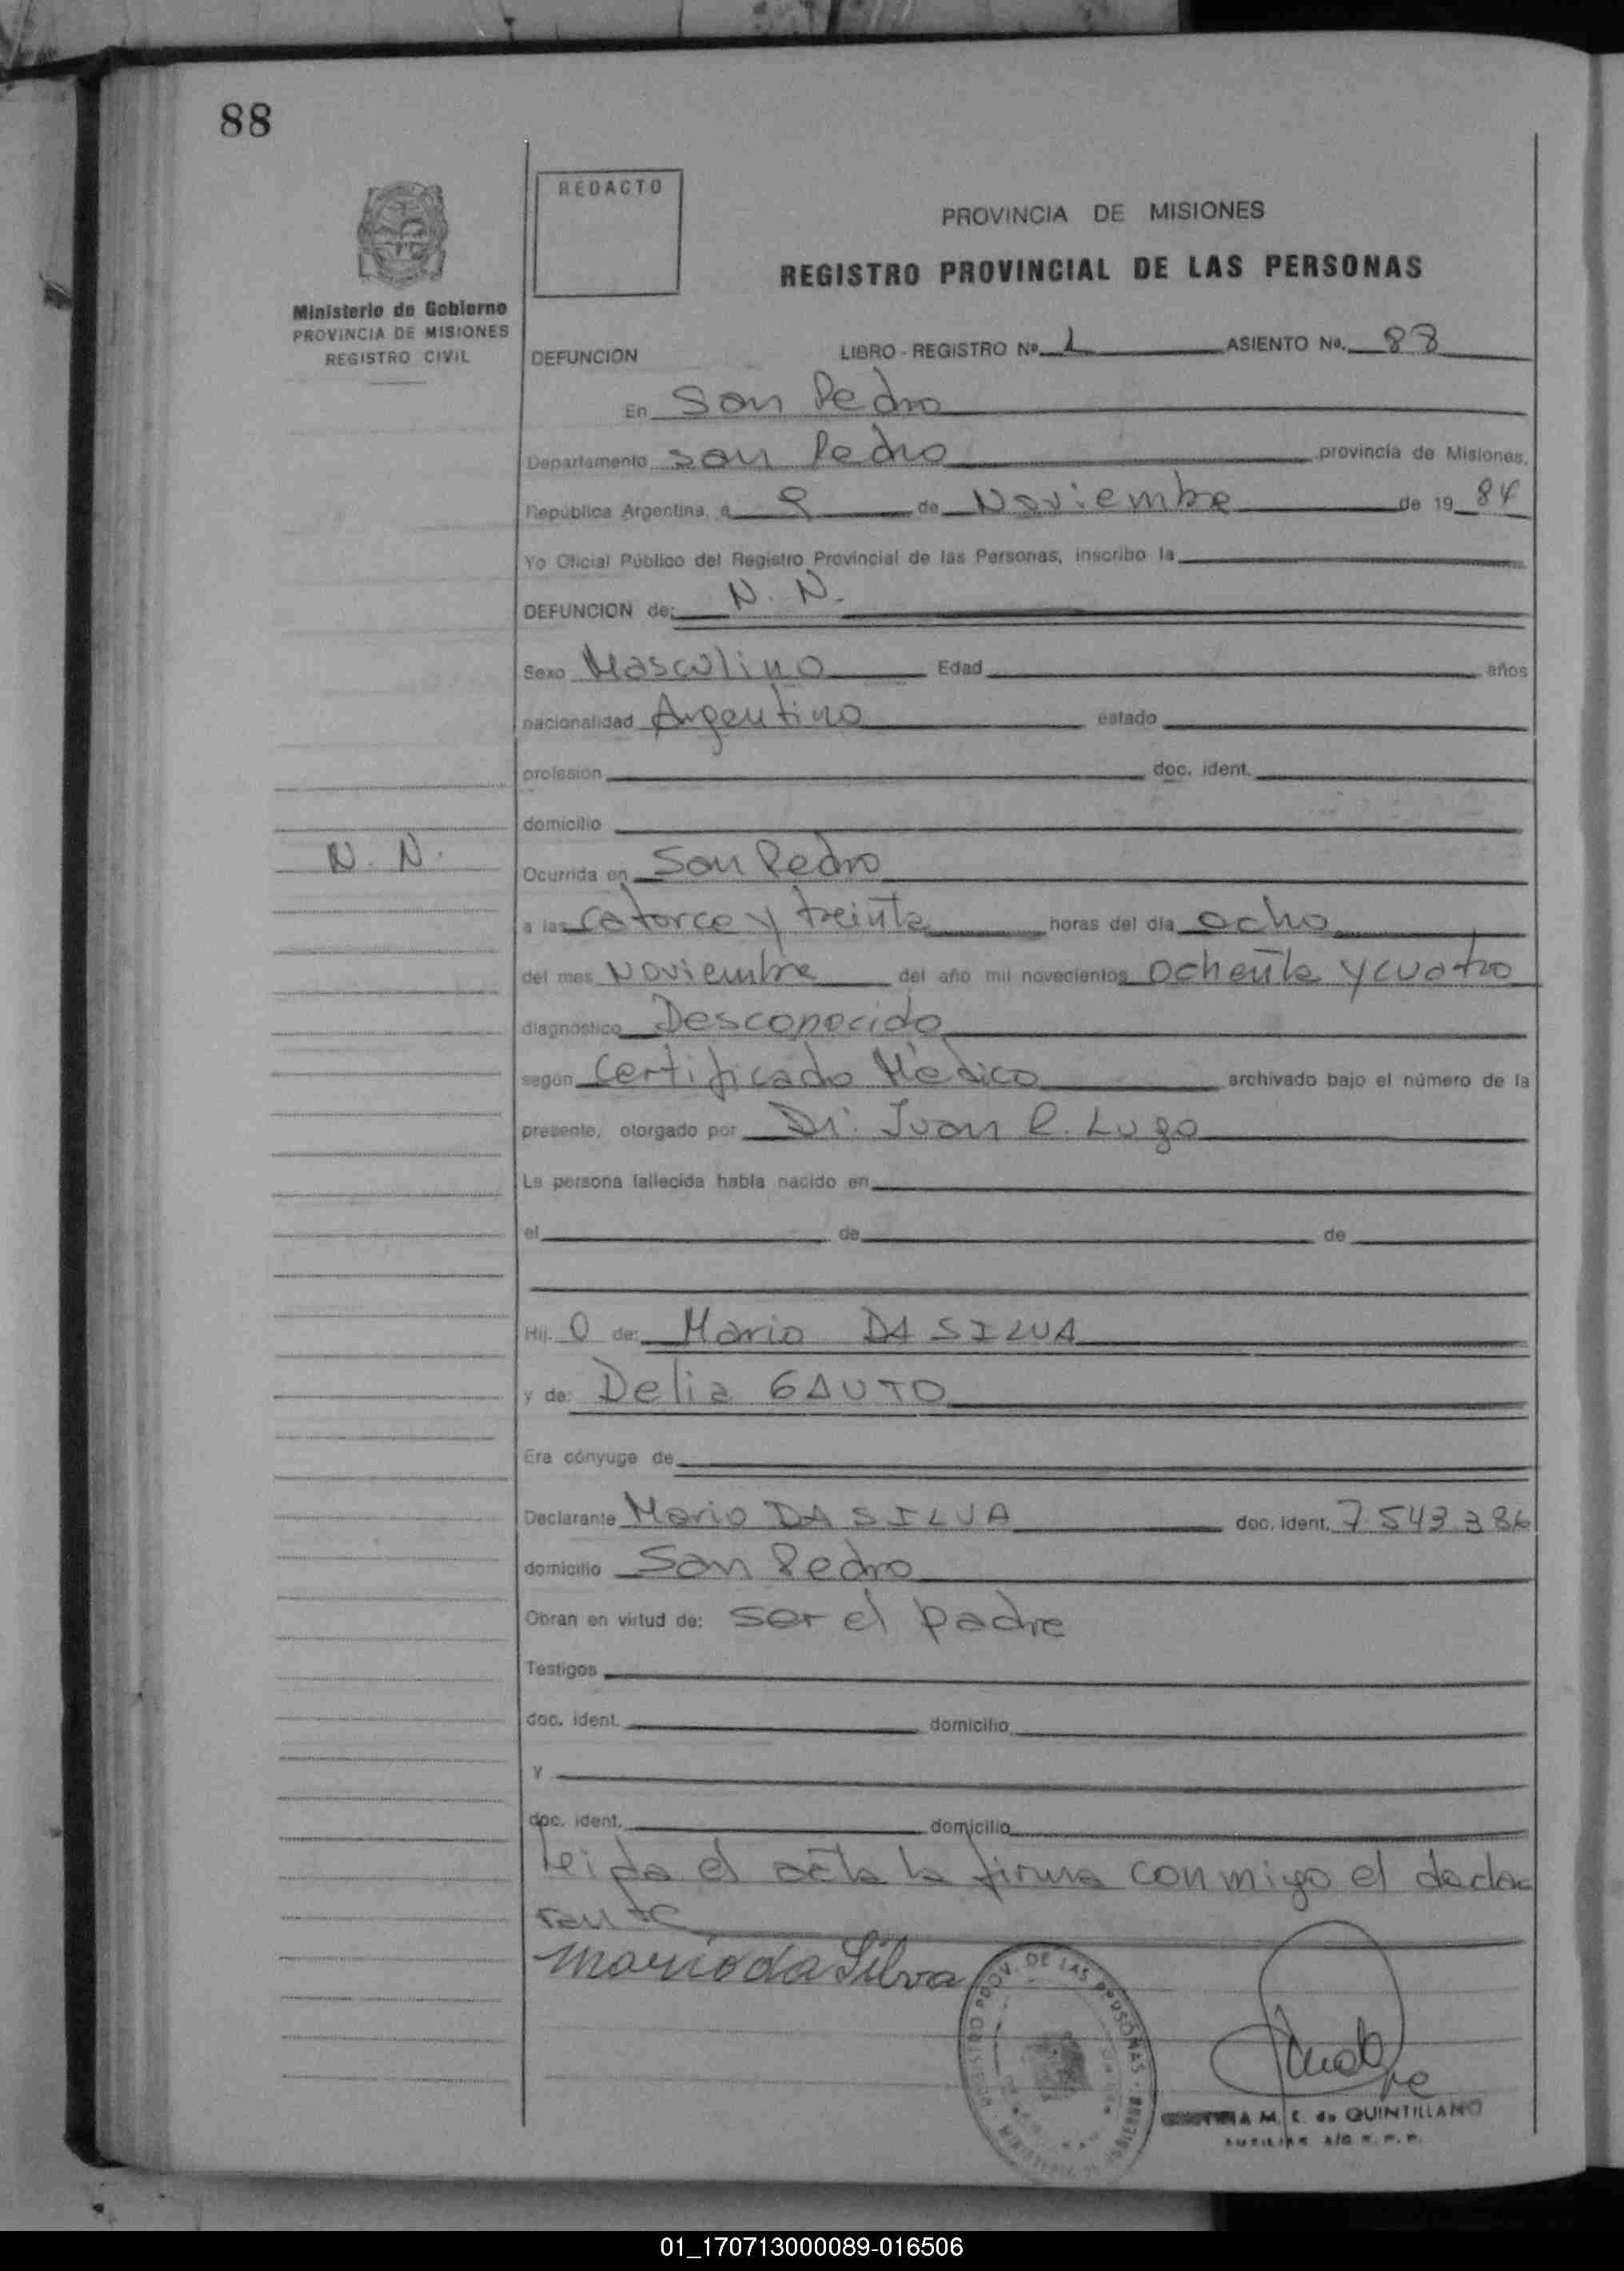 88
REDACTO
PROVINCIA DE MISIONES
REGISTRO PROVINCIAL DE LAS PERSONAS
Ministerio de Gobierno
PROVINCIA DE MISIONES
REGISTRO CIVIL
DEFUNCION LIBRO - REGISTRO Nº 1 ASIENTO No. 88
En San Pedro
Departamento San Pedro provincia de Misiones,
República Argentina, a 9 de Noviembre de 19 84
Yo Oficial Público del Registro Provincial de las Personas, inscribo la
DEFUNCION de: N. N.
Sexo Masculino Edad años
nacionalidad Argentino estado
profesión doc. ident.
domicilio
N. N.
Ocurrida en San Pedro
a las catorce y treinta horas del día ocho
del mes Noviembre del año mil novecientos ochenta y cuatro
diagnóstico Desconocido
según Certificado Médico archivado bajo el número de la
presente, otorgado por Dr. Juan R. Lugo
La persona fallecida había nacido en
el de de
Hij o de: Mario DA SILVA
y de: Delia GAUTO
Era cónyuge de
Declarante Mario DA SILVA doc. ident. 7.543.386
domicilio San Pedro
Obran en virtud de: ser el padre
Testigos
doc. ident. domicilio
y
doc. ident. domicilio
Leida el acta la firma conmigo el decla
rante
Mario da Silva
PROV. DE LAS PERSONAS
A M. E. de QUINTILLANO
AUXILIAR A/C R. P. P.
01_170713000089-016506